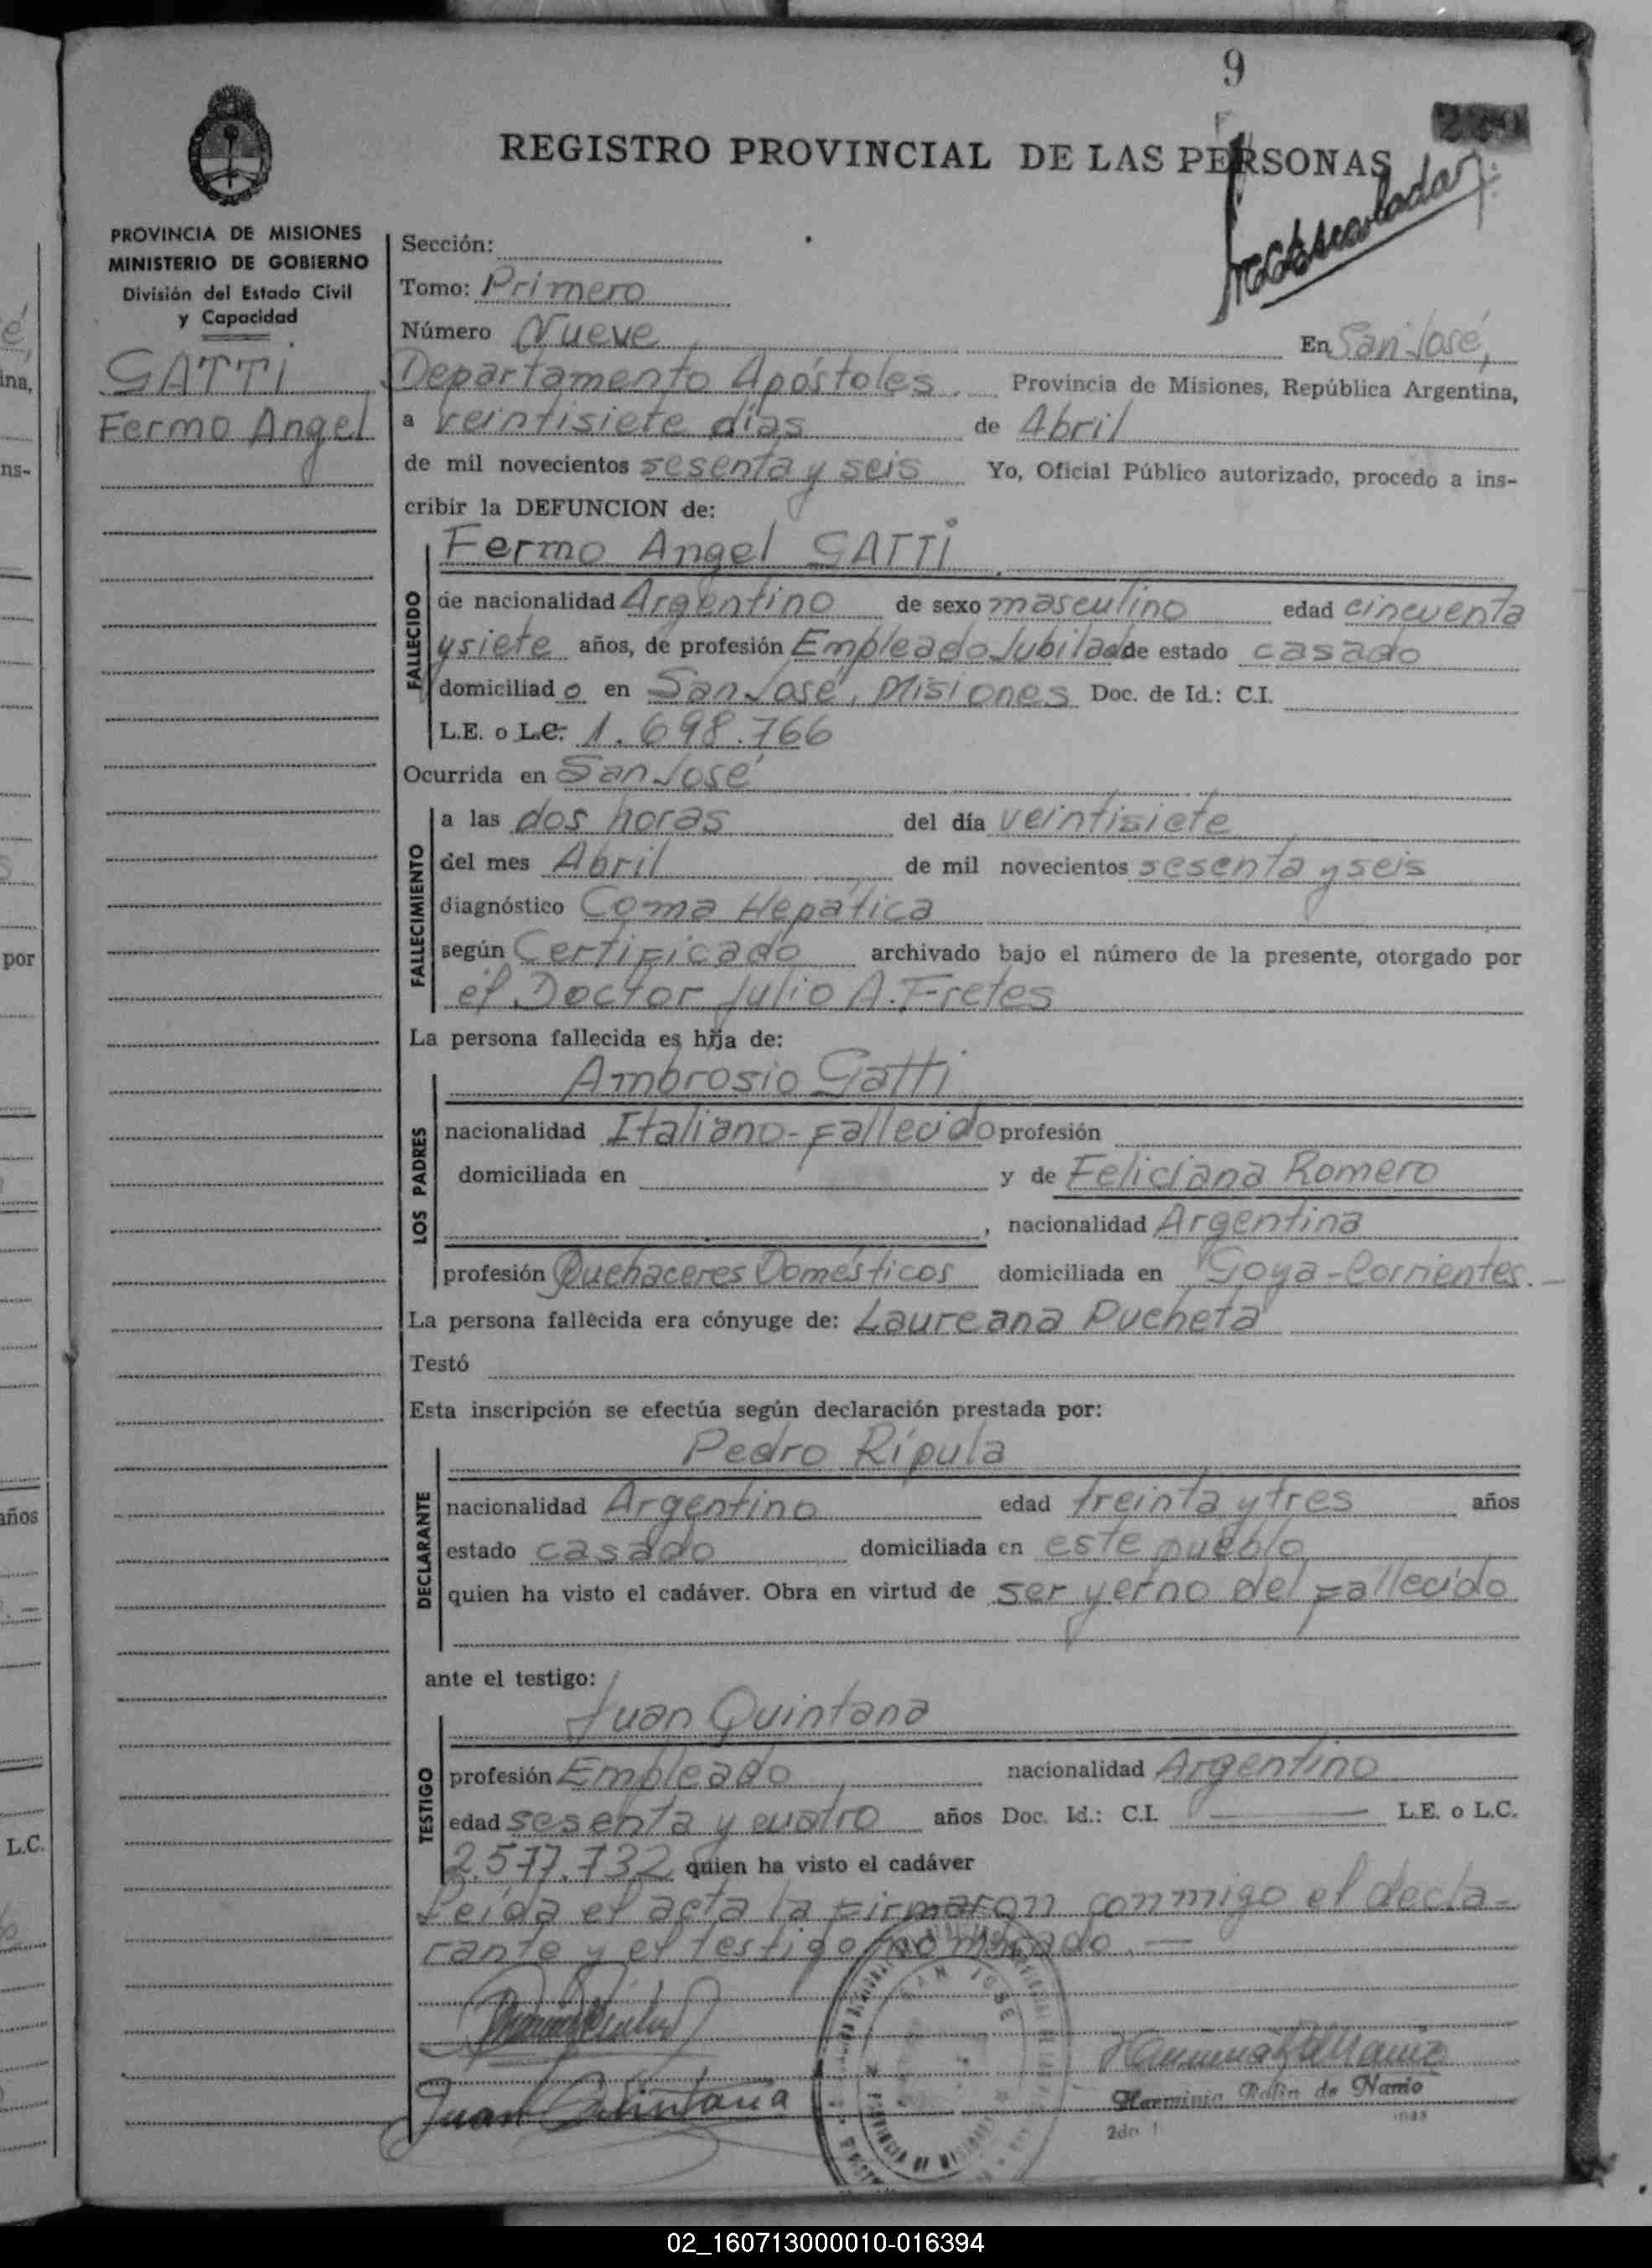 9
REGISTRO PROVINCIAL DE LAS PERSONAS
PROVINCIA DE MISIONES
MINISTERIO DE GOBIERNO
División del Estado Civil
y Capacidad
GATTI
Fermo Angel
Sección:
Tomo: Primero
Número Nueve En San José,
Departamento Apóstoles, Provincia de Misiones, República Argentina,
a veintisiete días de Abril
de mil novecientos sesenta y seis Yo, Oficial Público autorizado, procedo a ins-
cribir la DEFUNCION de:
Fermo Angel GATTI
FALLECIDO
de nacionalidad Argentino de sexo masculino edad cincuenta
y siete años, de profesión Empleado Jubilado de estado casado
domiciliado en San José, Misiones Doc. de Id.: C.I.
L.E. o L.C. 1.698.766
Ocurrida en San José
FALLECIMIENTO
a las dos horas del día veintisiete
del mes Abril de mil novecientos sesenta y seis
diagnóstico Coma Hepática
según Certificado archivado bajo el número de la presente, otorgado por
el Doctor Julio A. Fretes
La persona fallecida es hija de:
LOS PADRES
Ambrosio Gatti
nacionalidad Italiano-Fallecido profesión
domiciliada en y de Feliciana Romero
, nacionalidad Argentina
profesión Quehaceres Domésticos domiciliada en Goya-Corrientes.-
La persona fallecida era cónyuge de: Laureana Pucheta
Testó
Esta inscripción se efectúa según declaración prestada por:
DECLARANTE
Pedro Rípula
nacionalidad Argentino edad treinta y tres años
estado casado domiciliada en este pueblo
quien ha visto el cadáver. Obra en virtud de ser yerno del fallecido
ante el testigo:
TESTIGO
Juan Quintana
profesión Empleado nacionalidad Argentino
edad sesenta y cuatro años Doc. Id.: C.I. L.E. o L.C.
2.577.732 quien ha visto el cadáver
Leída el acta la firmaron conmigo el decla-
rante y el testigo nombrado.-
Juan Quintana
SAN JOSE
PROVINCIA DE MISIONES
Herminia de Namio
02_160713000010-016394
ina,
ns-
por
años
L.C.